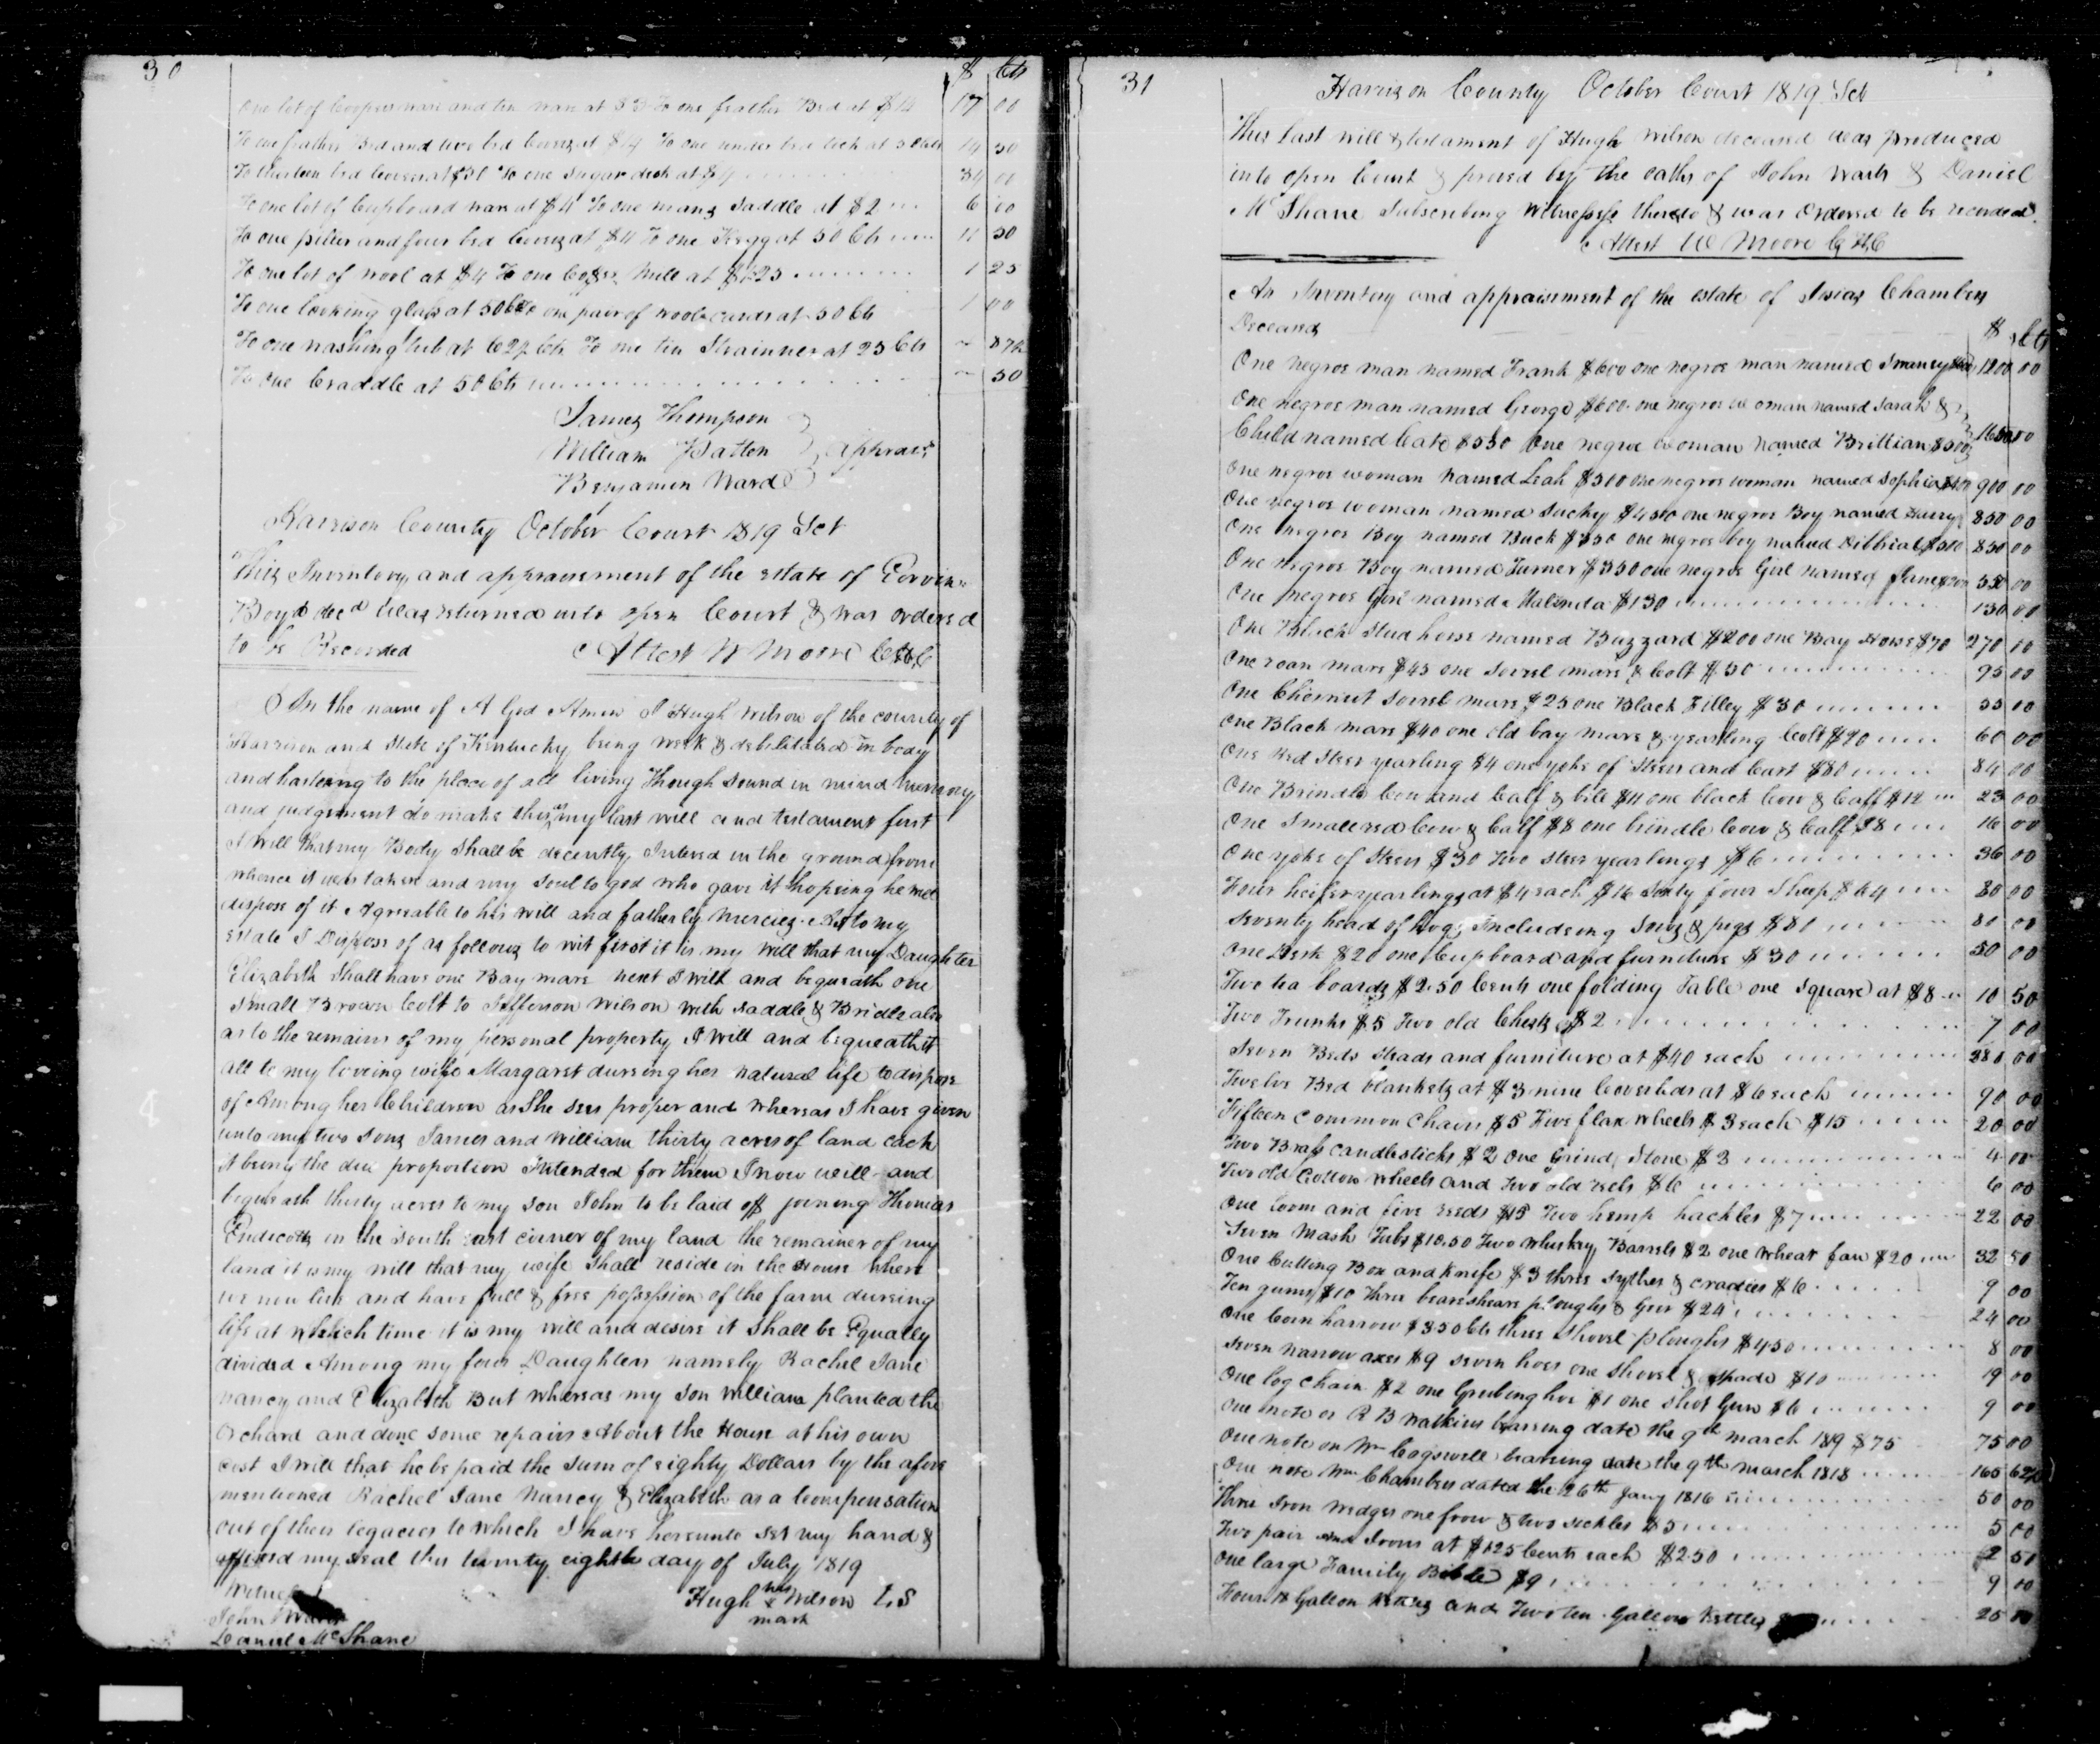 30
$ Cts
One lot of Coopers ware and tin ware at $3 To one feather Bed at $14 17 00
To one feather Bed and two bed Covers at $14 To one under bed tick at 50 cts 14 50
To thirteen bed Covers at $30 To one Sugar desk at $4 34 00
To one lot of Cupboard ware at $4 To one mans Saddle at $2 6 00
To one piller and four bed Covers at $11 To one Kegg at 50 Cts 11 50
To one lot of wool at $4 To one Coffee Mill at $1.25 1 25
To one looking glass at 50 Cts To one pair of wool cards at 50 Cts 1 00
To one washing tub at 62½ Cts To one tin Strainner at 25 Cts 87½
To one Craddle at 50 Cts 50
James Thompson
William Patton apprais
Benjamin Ward
Harrison County October Court 1819 Sct
This Inventory and appraisement of the estate of
Boyd decd was returned into open Court & was ordered
to be Recorded Attest W Moore
In the name of A God Amen I Hugh Wilson of the county of
Harrison and State of Kentucky being weak & debilitated in body
and hastening to the place of all living Though Sound in mind memory
and judgement do make this my last will and testament first
I will that my Body Shall be decently Intered in the ground from
whence it was taken and my Soul to god who gave it hopeing he will
dispose of it Agreeable to his will and fatherly mercies As to my
estate I Dispose of as follows to wit first it is my will that my Daughter
Elizabeth Shall have one Bay mare next I will and bequeath one
Small Brown Colt to Jefferson Wilson with saddle & Bridle also
as to the remains of my personal property I will and bequeath it
all to my loveing wife Margaret dureing her natural life to dispose
of Among her Children as She sees proper and whereas I have given
unto my two Sons James and William thirty acres of land each
it being the due proportion Intended for them I now will and
bequeath thirty acres to my son John to be laid off joining Thomas
Endicotts in the South east corner of my land the remainer of my
land it is my will that my wife Shall reside in the House where
we now live and have full & free possession of the farm dureing
life at which time it is my will and desire it Shall be Equally
divided Among my four Daughters namely Rachel Jane
Nancy and Elizabeth But whereas my son William planted the
Orchard and done some repairs About the House at his own
cost I will that he be paid the sum of eighty Dollars by the afore
mentioned Rachel Jane Nancy & Elizabeth as a Compensation
out of their legacies to which I have hereunto set my hand &
affixed my seal this twenty eighth day of July 1819
Witness
Hugh his x mark Wilson LS
John
Daniel McShane
31
Harrison County October Court 1819 Sct
This last will & testament of Hugh Wilson deceased was produced
into open Court & proved by the oaths of John & Daniel
McShane Subscribing Witnesses thereto & was Ordered to be recorded
Attest W Moore
An Inventory and appraisement of the estate of Josias Chambers
Deceased $ cts
One negroe man named Frank $600 one negroe man named 1200 00
One negroe man named George $600 one negroe woman named Sarah &
Child named Cate $550 One negroe woman named Brittian $500 1650 00
One negroe woman named Leah $500 one negroe woman named Sophia $400 900 00
One negroe woman named Suckey $450 one negroe Boy named Harry 850 00
One negroe Boy named Buck $350 one negroe boy named $500 850 00
One negroe Boy named Turner $350 one negroe Girl named Jane $200 550 00
One negroe Girl named Malinda $130 130 00
One Black Stud horse named Buzzard $200 one Bay Horse $70 270 00
One roan mare $45 one Sorrel mare & Colt $50 95 00
One Chesnut Sorrel mare $25 one Black Filley $30 55 00
One Black mare $40 one old bay mare & yearling Colt $20 60 00
One Red Steer yearling $4 one yoke of Steers and Cart $80 84 00
One Brindle Cow and Calf & bell $11 one black Cow & Calf $12 23 00
One Small red Cow & Calf $8 one brindle Cow & Calf $8 16 00
One yoke of Steers $30 Two steer yearlings $6 36 00
Four heifer yearlings at $4 each $16 Sixty four Sheep $64 80 00
Seventy head of hogs Includeing Sows & pigs $80 80 00
One Desk $20 one Cupboard and furniture $30 50 00
Two tea boards $2.50 Cents one folding Table one Square at $8 10 50
Two Trunks $5 Two old Chests $2 7 00
Seven Beds steads and furniture at $40 each 280 00
Twelve Bed blankets at $3 nine Coverlids at $6 each 90 00
Fifteen Common Chairs $5 Five flax wheels $3 each $15 20 00
Two Brass Candlesticks $2 One Grind Stone $3 4 00
Two old Cotton wheels and Two old reels $6 6 00
One loom and five reeds $15 Two hemp hackles $7 22 00
Seven Mash Tubs $10.50 Two Whiskey Barrels $2 one wheat fan $20 32 50
One Cutting Box and Knife $3 three Sythes & cradles $6 9 00
Ten gums $10 three bearshear ploughs & Geer $24 24 00
One Corn harrow $3.50 Cts three Shovel ploughs $4.50 8 00
Seven narrow axes $9 seven hoes one Shovel & Spade $10 19 00
One log chain $2 one Grubing hoe $1 one Shot Gun $6 9 00
One note on R B Watkins bearing date the 9th march 1819 $75 75 00
One note on Wm Cogswell bearing date the 9th march 1818 165 62½
One note Wm Chambers dated the 26th Jany 1816 50 00
Three Iron wedges one frow & two sickles $5 5 00
Two pair Irons at $1.25 Cents each $2.50 2 50
One large Family Bible $9 9 00
Four Gallon Kettles and Two ten Gallon Kettles 25 00